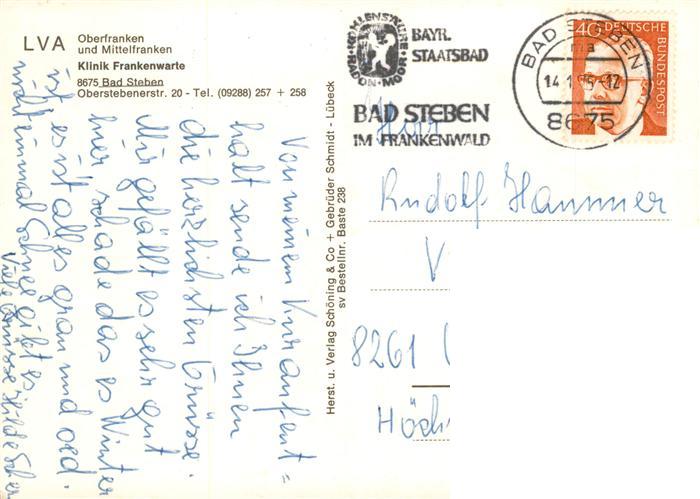 LVA Oberfranken
und Mittelfranken
Klinik Frankenwarte
8675 Bad Steben
Oberstebenerstr. 20 - Tel. (09288) 257 + 258
KOHLENSÄURE RADON MOOR
BAYR.
STAATSBAD
BAD STEBEN
IM FRANKENWALD
BAD STEBEN
14.1.75-17
8675
40 DEUTSCHE BUNDESPOST
Von meinem Kuraufent=
halt sende ich Ihnen
die herzlichsten Grüsse.
Mir gefällt es sehr gut
hier schade das es Winter
ist es ist alles grau und oed.
nicht einmal Schnee gibt es
Viele Grüsse Hilde
Herst. u. Verlag Schöning & Co + Gebrüder Schmidt - Lübeck
sv Bestellnr. Baste 238
Herr
Rudolf Hammer
V
8261
Höch